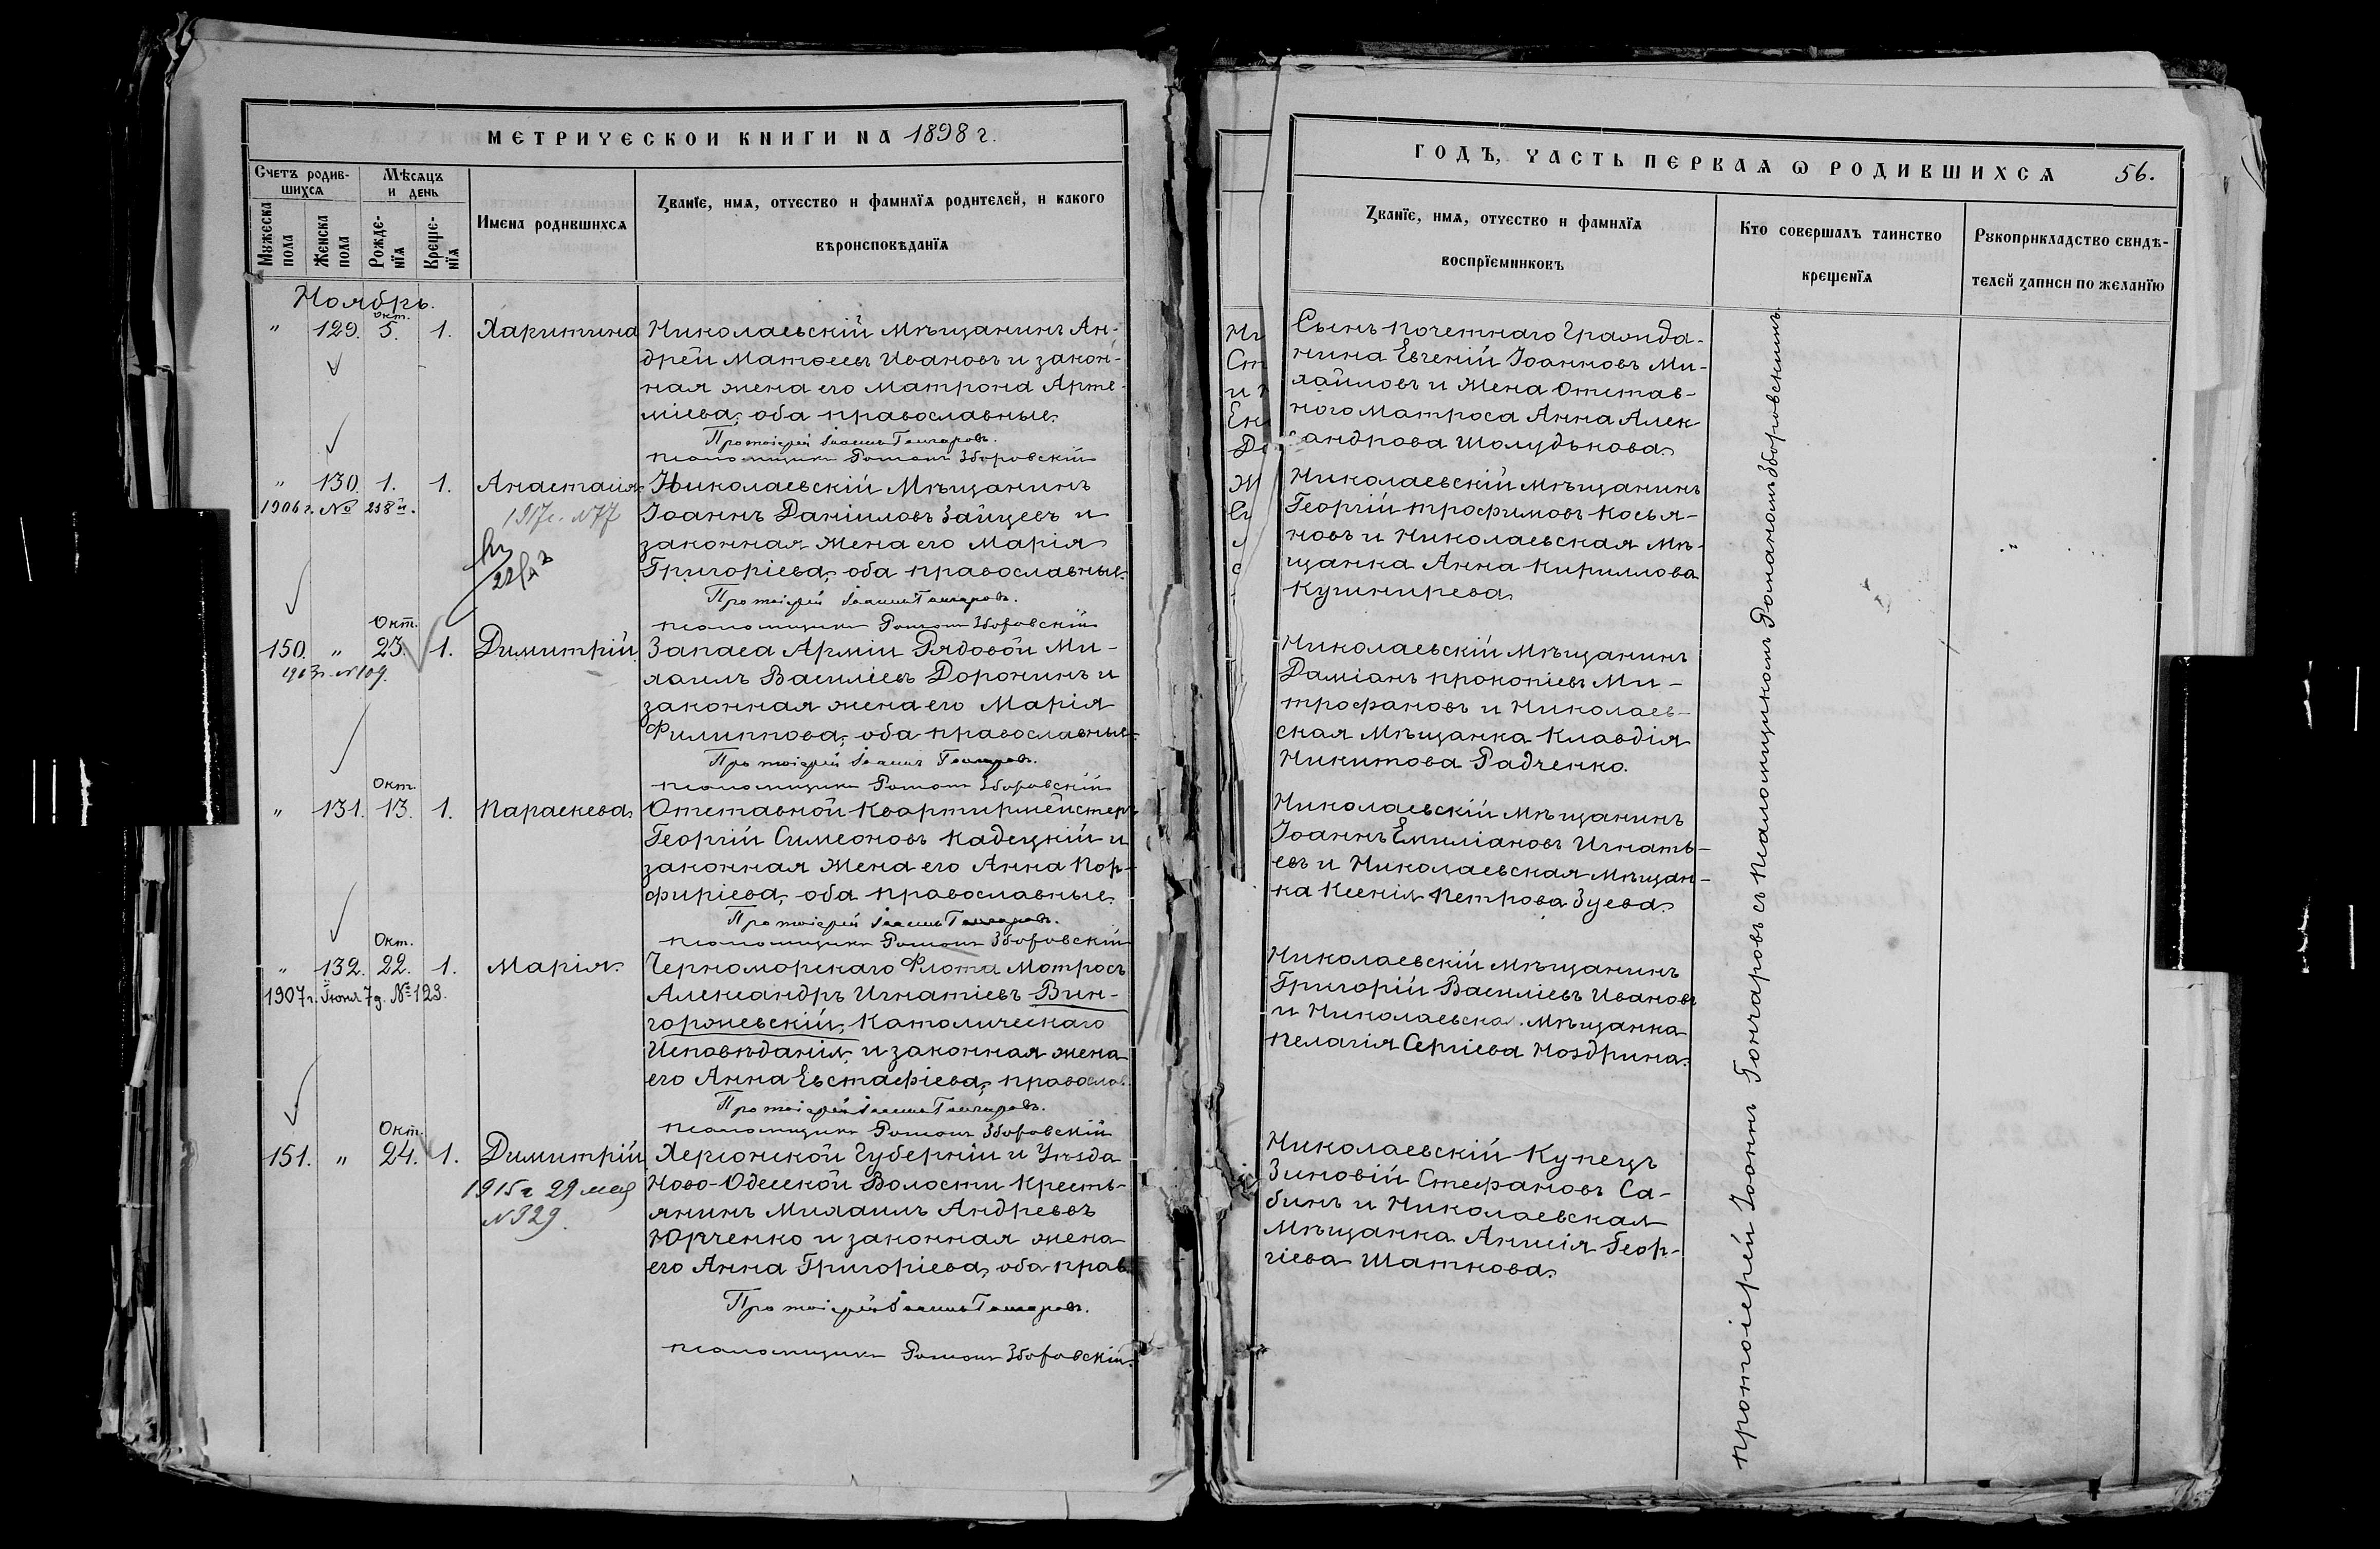 МЕТРИЧЕСКОЙ КНИГИ НА 1898 г.
Счетъ родив-
шихся
Мѣсяцъ
и день
Мужеска
пола
Женска
пола
Рожде-
нїя
Креще-
нїя
Имена родившихся
Званїе, имя, отчество и фамилїя родителей, и какого
вѣроисповѣданїя
Ноябрь.
окт.
" 129. 5. 1. Харитина Николаевскій Мѣщанинъ Ан-
дрей Матѳеевъ Ивановъ и закон-
ная жена его Матрона Арте-
міева, оба православные.
Протоіерей Іоаннъ Гончаровъ.
Псаломщикъ Романъ Зборовскій
" 130. 1. 1. Анастасія Николаевскій Мѣщанинъ
1906 г. № 238й. 1917г. N77 Іоаннъ Даніиловъ Зайцевъ и
законная жена его Марія
Григоріева, оба православные.
Протоіерей Іоаннъ Гончаровъ.
Псаломщикъ Романъ Зборовскій
Окт.
150. " 23. 1. Димитрій Запаса Арміи Рядовой Ми-
1903г. N109. хаилъ Василіевъ Доронинъ и
законная жена его Марія
Филиппова, оба православные.
Протоіерей Іоаннъ Гончаровъ.
Псаломщикъ Романъ Зборовскій
Окт.
" 131. 13. 1. Параскева Отставной Квартирмейстеръ
Георгій Симеоновъ Кадецкій и
законная жена его Анна Пор-
фиріева, оба православные.
Протоіерей Іоаннъ Гончаровъ.
Псаломщикъ Романъ Зборовскій
Окт.
" 132. 22. 1. Марія. Черноморскаго Флота Матросъ
1907г. Іюня 7д. № 123. Александръ Игнатіевъ Вин-
горжевскій, Католическаго
Исповѣданія, и законная жена
его Анна Евстафіева, правосл.
Протоіерей Іоаннъ Гончаровъ.
Псаломщикъ Романъ Зборовскій
Окт.
151. " 24. 1. Димитрій Херсонской Губерніи и Уѣзда
1915г 29 мая Ново-Одесской Волости Кресть-
N329. янинъ Михаилъ Андреевъ
Юрченко и законная жена
его Анна Григоріева, оба прав.
Протоіерей Іоаннъ Гончаровъ.
Псаломщикъ Романъ Зборовскій.
ГОДЪ, ЧАСТЬ ПЕРВАЯ Ѡ РОДИВШИХСЯ 56.
Званїе, имя, отчество и фамилїя
воспрїемниковъ
Кто совершалъ таинство
крещенїя
Рукоприкладство свидѣ-
телей записи по желанїю
Сынъ Почетнаго Гражда-
нина Евгеній Іоанновъ Ми-
хайловъ и Жена Отстав-
ного Матроса Анна Алек-
сандрова Шолудькова.
Николаевскій Мѣщанинъ
Георгій Трофимовъ Косья-
новъ и Николаевская Мѣ-
щанка Анна Кириллова
Кушнирева.
Николаевскій Мѣщанинъ
Даміанъ Прокопіевъ Ми-
трофановъ и Николаев-
ская Мѣщанка Клавдія
Никитова Радченко.
Николаевскій Мѣщанинъ
Іоаннъ Емиліановъ Игнать-
евъ и Николаевская Мѣщан-
ка Ксенія Петрова Зуева.
Николаевскій Мѣщанинъ
Григорій Василіевъ Ивановъ
и Николаевская Мѣщанка
Пелагія Сергіева Ноздрина.
Николаевскій Купецъ
Зиновій Стефановъ Са-
бинъ и Николаевская
Мѣщанка Анисія Геор-
гіева Шаткова.
Протоіерей Іоаннъ Гончаровъ съ Псаломщикомъ Романомъ Зборовскимъ